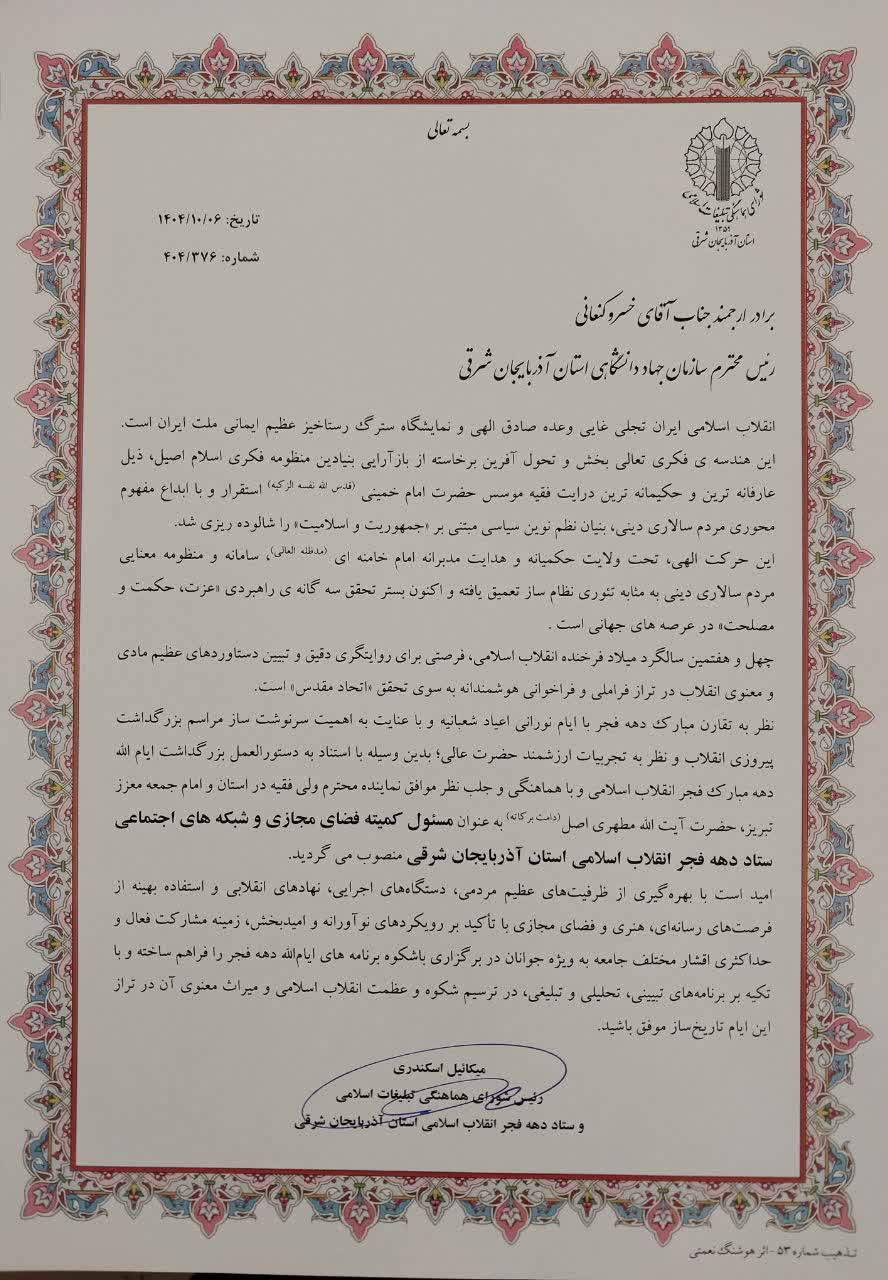 بسمه تعالی
شورای هماهنگی تبلیغات اسلامی
۱۳۵۹
استان آذربایجان شرقی
تاریخ: ۱۴۰۴/۱۰/۰۶
شماره: ۴۰۴/۳۷۶
برادر ارجمند جناب آقای خسرو کنعانی
رئیس محترم سازمان جهاد دانشگاهی استان آذربایجان شرقی
انقلاب اسلامی ایران تجلی غایی وعده صادق الهی و نمایشگاه سترگ رستاخیز عظیم ایمانی ملت ایران است.
این هندسه ی فکری تعالی بخش و تحول آفرین برخاسته از بازآرایی بنیادین منظومه فکری اسلام اصیل، ذیل
عارفانه ترین و حکیمانه ترین درایت فقیه موسس حضرت امام خمینی (قدس الله نفسه الزکیه) استقرار و با ابداع مفهوم
محوری مردم سالاری دینی، بنیان نظم نوین سیاسی مبتنی بر «جمهوریت و اسلامیت» را شالوده ریزی شد.
این حرکت الهی، تحت ولایت حکمیانه و هدایت مدبرانه امام خامنه ای (مدظله العالی)، سامانه و منظومه معنایی
مردم سالاری دینی به مثابه تئوری نظام ساز تعمیق یافته و اکنون بستر تحقق سه گانه ی راهبردی «عزت، حکمت و
مصلحت» در عرصه های جهانی است .
چهل و هفتمین سالگرد میلاد فرخنده انقلاب اسلامی، فرصتی برای روایتگری دقیق و تبیین دستاوردهای عظیم مادی
و معنوی انقلاب در تراز فراملی و فراخوانی هوشمندانه به سوی تحقق «اتحاد مقدس» است.
نظر به تقارن مبارک دهه فجر با ایام نورانی اعیاد شعبانیه و با عنایت به اهمیت سرنوشت ساز مراسم بزرگداشت
پیروزی انقلاب و نظر به تجربیات ارزشمند حضرت عالی؛ بدین وسیله با استناد به دستورالعمل بزرگداشت ایام الله
دهه مبارک فجر انقلاب اسلامی و با هماهنگی و جلب نظر موافق نماینده محترم ولی فقیه در استان و امام جمعه معزز
تبریز، حضرت آیت الله مطهری اصل(دامت برکاته) به عنوان مسئول کمیته فضای مجازی و شبکه های اجتماعی
ستاد دهه فجر انقلاب اسلامی استان آذربایجان شرقی منصوب می گردید.
امید است با بهره‌گیری از ظرفیت‌های عظیم مردمی، دستگاه‌های اجرایی، نهادهای انقلابی و استفاده بهینه از
فرصت‌های رسانه‌ای، هنری و فضای مجازی با تأکید بر رویکردهای نوآورانه و امیدبخش، زمینه مشارکت فعال و
حداکثری اقشار مختلف جامعه به ویژه جوانان در برگزاری باشکوه برنامه های ایام‌الله دهه فجر را فراهم ساخته و با
تکیه بر برنامه‌های تبیینی، تحلیلی و تبلیغی، در ترسیم شکوه و عظمت انقلاب اسلامی و میراث معنوی آن در تراز
این ایام تاریخ‌ساز موفق باشید.
میکائیل اسکندری
رئیس شورای هماهنگی تبلیغات اسلامی
و ستاد دهه فجر انقلاب اسلامی استان آذربایجان شرقی
تذهیب شماره ۵۳ - اثر هوشنگ نعمتی